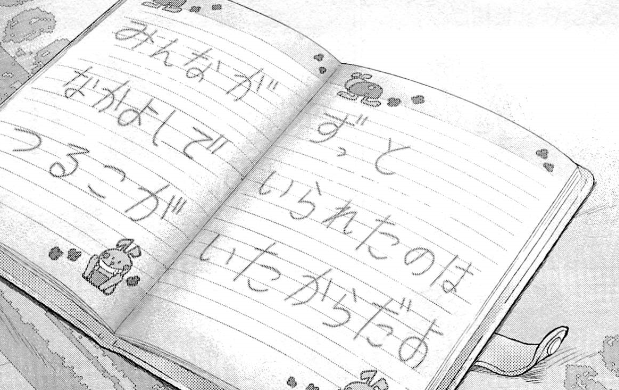 みんなが
なかよしで
つるこが
ずっと
いられたのは
いたからだよ